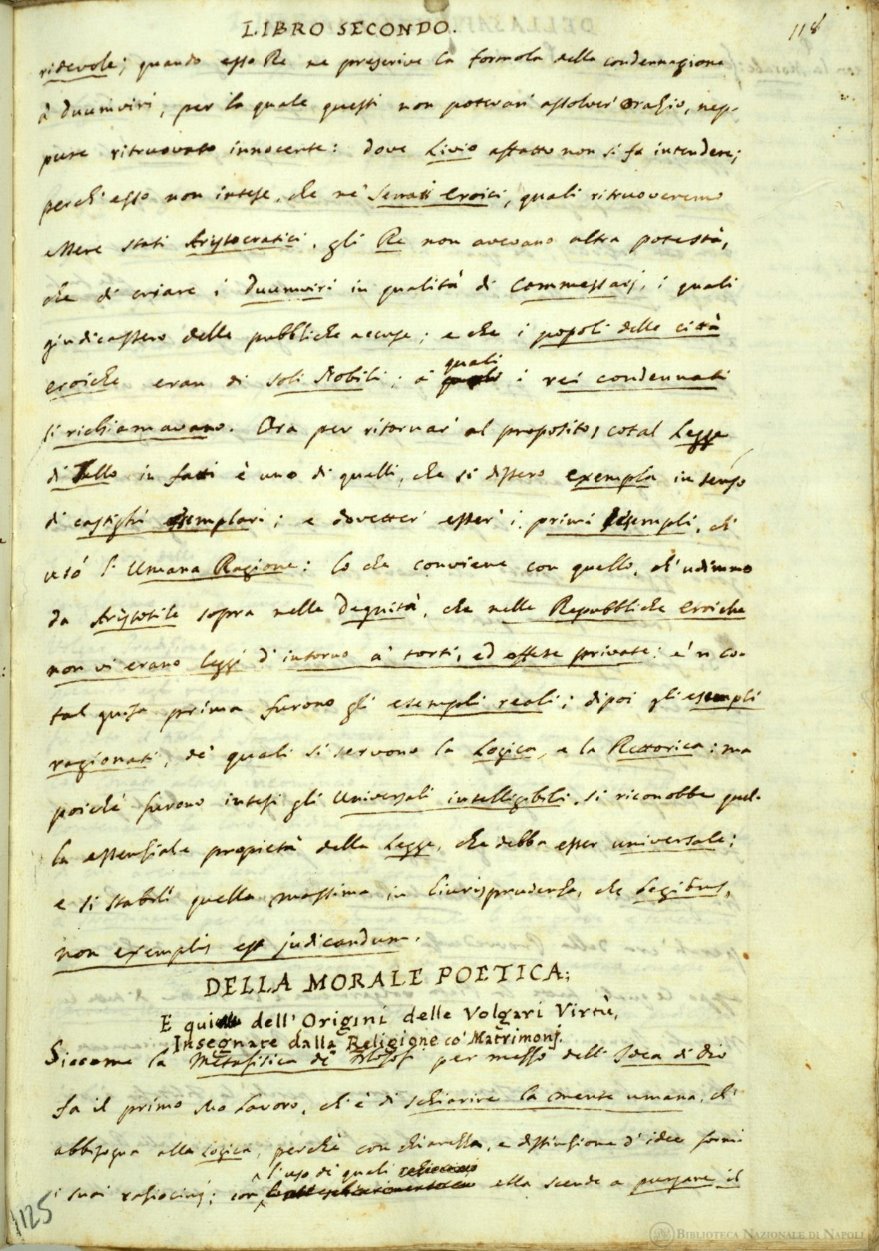 LIBRO SECONDO.
118
ridevole; quando esso Re ne prescrive la formola della condennagione
a' Duumviri, per la quale questi non potevan' assolver' Orazio, nep-
pure ritruovato innocente: dove Livio affatto non si fa intendere;
perch' esso non intese, che ne' Senati Eroici, quali ritruoveremo
essere stati Aristocratici, gli Re non avevano altra potestà,
che di criare i Duumviri in qualità di Commessarj, i quali
giudicassero delle pubbliche accuse; e che i popoli delle città
eroiche eran di soli Nobili; a' quali i rei condennati
si richiamavano. Ora per ritornar' al proposito, cotal Legge
di Tullo in fatti è uno di quelli, che si dissero exempla in senso
di castighi essemplari; e dovetter' esser' i primi esempli, ch'
usò l' Umana Ragione: lo che conviene con quello, ch' udimmo
da Aristotile sopra nelle Degnità, che nelle Repubbliche Eroiche
non vi erano leggi d' intorno a' torti, ed offese private: e 'n co-
tal guisa prima furono gli esempli reali; dipoi gli esempli
ragionati, de' quali si servono la Logica, e la Rettorica: ma
poichè furono intesi gli Universali intelligibili, si riconobbe quel-
la essenziale propietà della Legge, che debba esser universale;
e si stabilì quella massima in Giurisprudenza, che legibus,
non exemplis est judicandum.
DELLA MORALE POETICA;
E qui dell' Origini delle Volgari Virtù,
Insegnate dalla Religione co' Matrimonj.
Siccome la Metafisica de' Filosofi per mezzo dell' Idea di Dio
fa il primo suo lavoro, ch' è di schiarire la mente umana, ch'
abbisogna alla Logica, perchè con chiarezza, e distinzione d' idee formi
l' uso di quali
i suoi raziocinj; con ella scende a purgare il
1125
BIBLIOTECA NAZIONALE DI NAPOLI